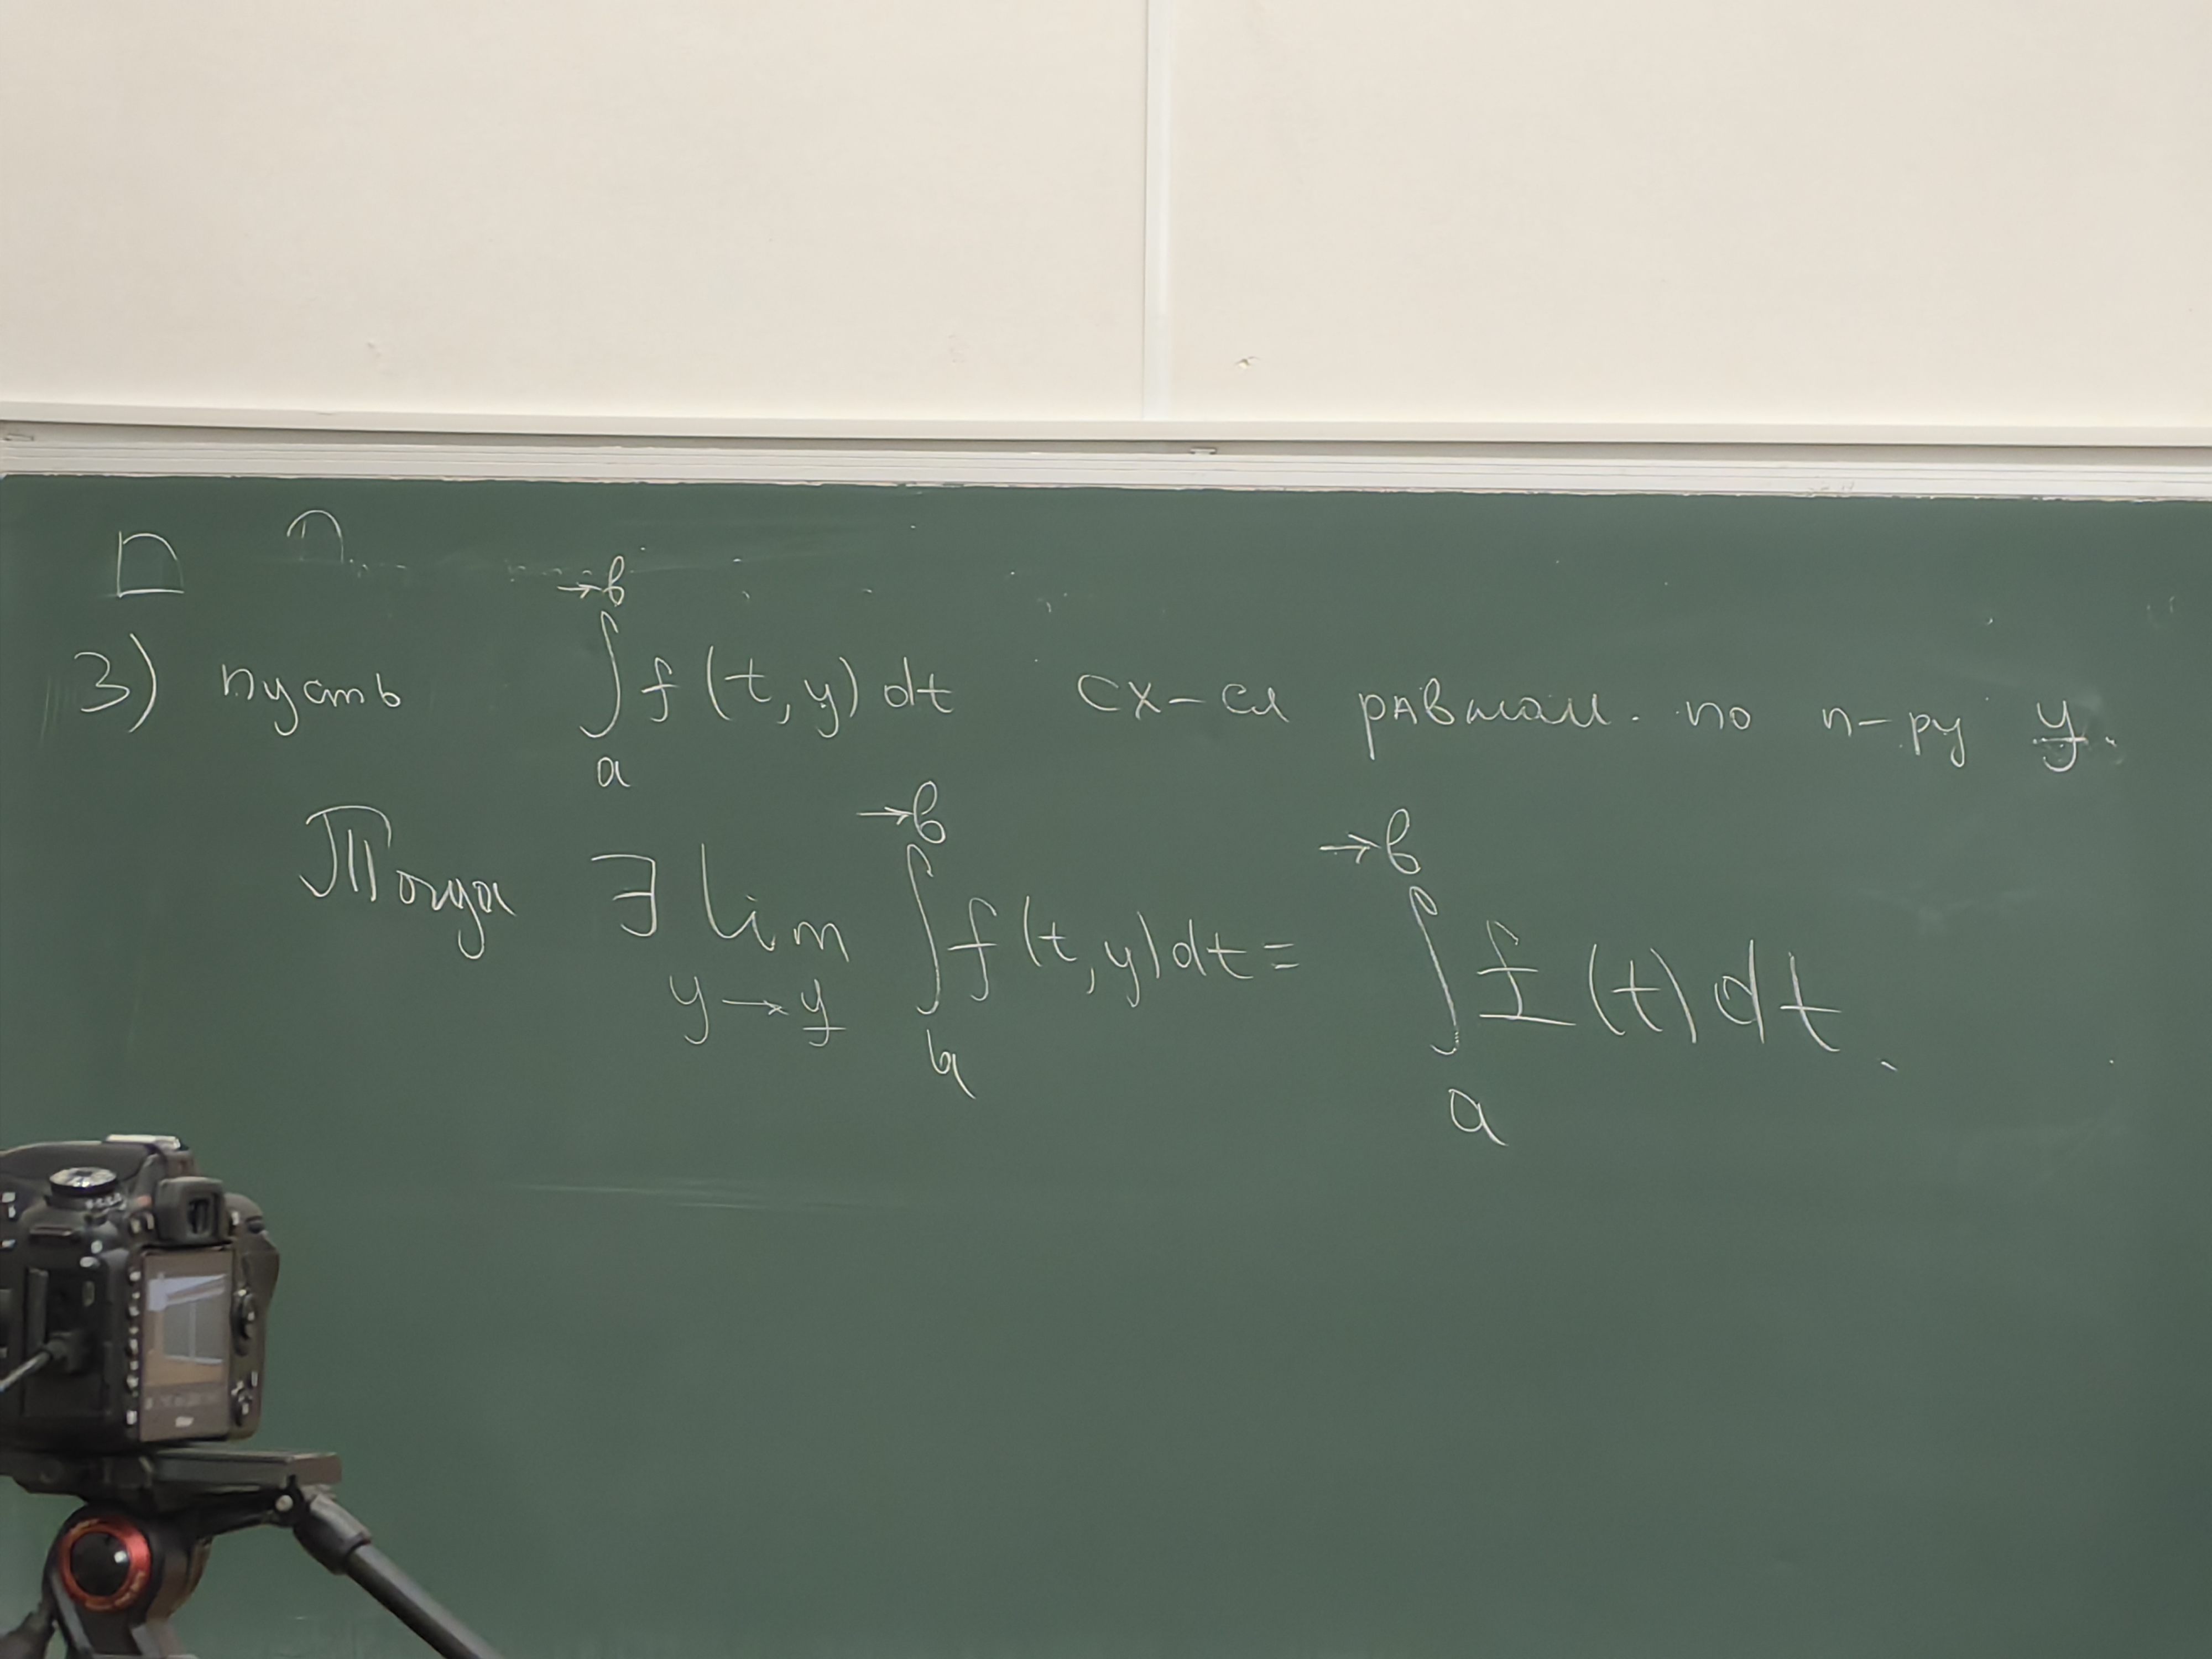 3) пусть ∫_a^{→b} f(t,y)dt сх-ся равном. по п-ру y.
Тогда ∃ lim_{y→y̲} ∫_a^{→b} f(t,y)dt = ∫_a^{→b} f̲(t)dt.